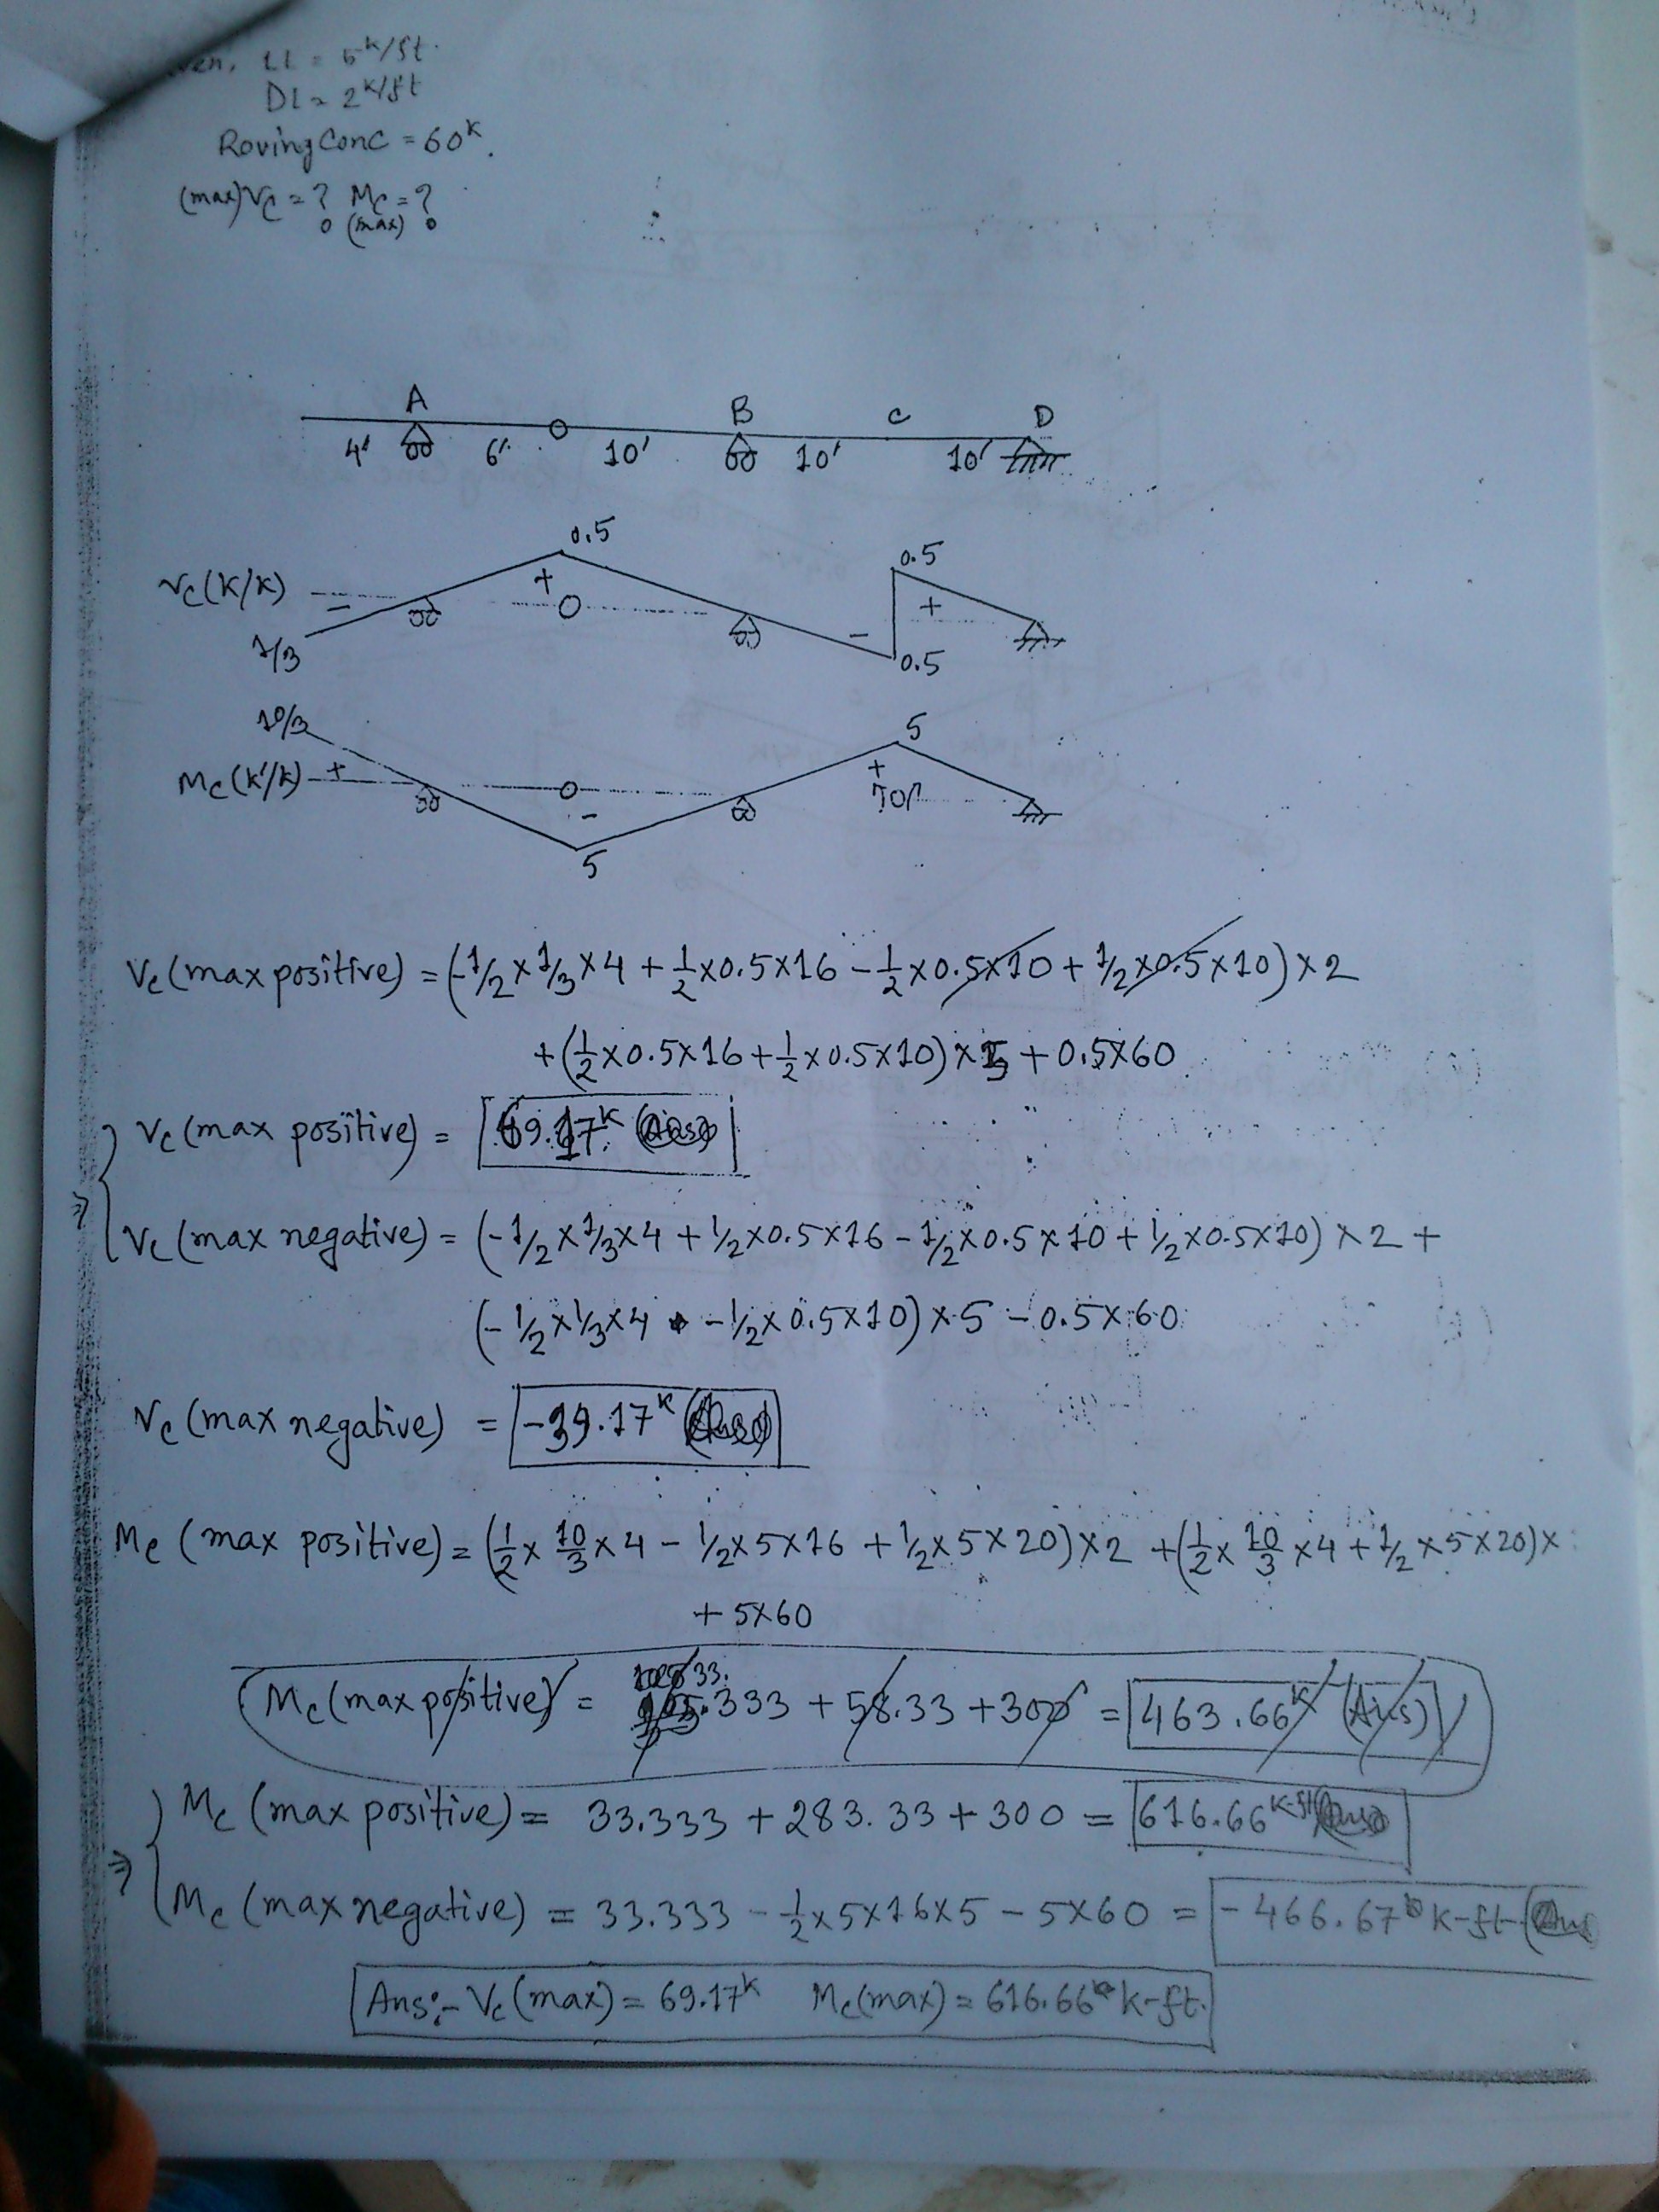 LL = 5 k/ft.
DL = 2 k/ft
Roving Conc = 60k.
(max) Vc = ? Mc = ?
(max)
A B C D
4' 6' 10' 10' 10'
0.5
Vc (k/k) - + - + 0.5
1/3 0.5
10/3 5
Mc (k'/k) + - +
5
Vc (max positive) = (-1/2 x 1/3 x 4 + 1/2 x 0.5 x 16 - 1/2 x 0.5 x 10 + 1/2 x 0.5 x 10) x 2
+ (1/2 x 0.5 x 16 + 1/2 x 0.5 x 10) x 5 + 0.5 x 60
Vc (max positive) = 69.17k
⇒ Vc (max negative) = (-1/2 x 1/3 x 4 + 1/2 x 0.5 x 16 - 1/2 x 0.5 x 10 + 1/2 x 0.5 x 10) x 2 +
(-1/2 x 1/3 x 4 - 1/2 x 0.5 x 10) x 5 - 0.5 x 60
Vc (max negative) = -39.17k
Mc (max positive) = (1/2 x 10/3 x 4 - 1/2 x 5 x 16 + 1/2 x 5 x 20) x 2 + (1/2 x 10/3 x 4 + 1/2 x 5 x 20) x
+ 5 x 60
Mc (max positive) = .333 + 58.33 + 300 = 463.66k (Ans)
⇒ Mc (max positive) = 33.333 + 283.33 + 300 = 616.66 k-ft
Mc (max negative) = 33.333 - 1/2 x 5 x 16 x 5 - 5 x 60 = -466.67 k-ft
Ans:- Vc (max) = 69.17k Mc (max) = 616.66 k-ft.